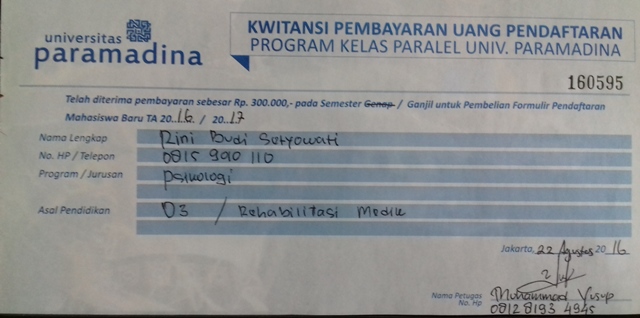 universitas
paramadina
KWITANSI PEMBAYARAN UANG PENDAFTARAN
PROGRAM KELAS PARALEL UNIV. PARAMADINA
160595
Telah diterima pembayaran sebesar Rp. 300.000,- pada Semester Genap / Ganjil untuk Pembelian Formulir Pendaftaran
Mahasiswa Baru TA 20.16 / 20.17
Nama Lengkap Rini Budi Setyowati
No. HP / Telepon 0815 990 110
Program / Jurusan Psikologi
Asal Pendidikan D3 / Rehabilitasi Medik
Jakarta, 22 Agustus 20 16
Nama Petugas Muhammad Yusup
No. Hp 0812 8193 4945